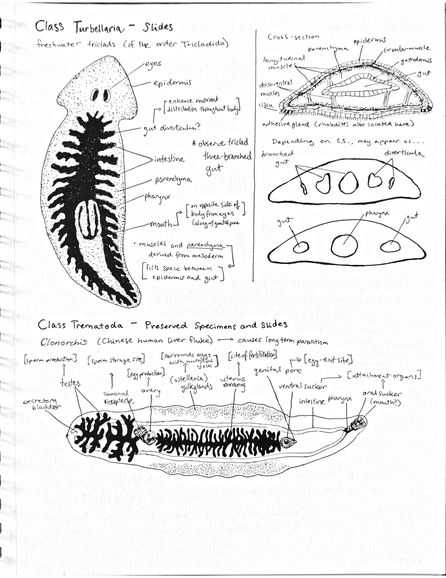 Class Turbellaria – Slides
freshwater triclads (of the order Tricladida)
eyes
epidermis
enhance nutrient
distribution throughout body
gut diverticula?
* observe triclad
three-branched
gut
intestine
parenchyma
pharynx
mouth
on opposite side of
body from eyes
• muscles and parenchyma
derived from mesoderm
fills space between
epidermis and gut
Cross-section
epidermis
parenchyma
circular muscle
longitudinal
muscle
gastrodermis
gut
dorsoventral
muscles
cilia
adhesive gland (rhabdites also located here)
Depending on C.S., may appear as...
branched
gut
diverticula
gut
pharynx
gut
Class Trematoda – Preserved Specimens and Slides
Clonorchis (Chinese human liver fluke) → causes long term parasitism
[sperm production]
[sperm storage site]
[surrounds eggs
with nutritious
yolk]
[site of fertilization]
[egg-exit site]
[egg production]
[attachment organs]
testes
seminal
receptacle
ovary
(vitellaria)
yolk glands
uterus
genital pore
ventral sucker
intestine
pharynx
oral sucker
(mouth?)
excretory
bladder